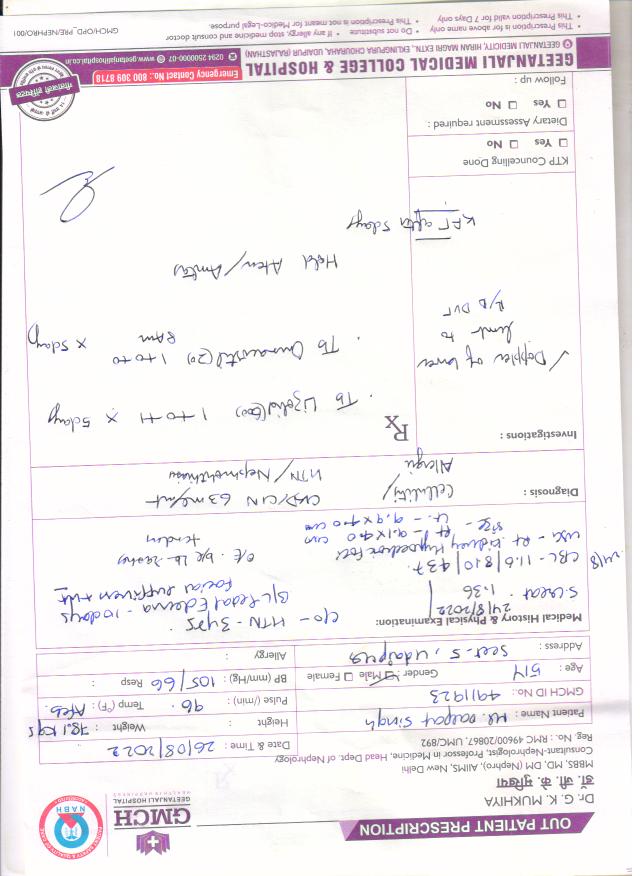 OUT PATIENT PRESCRIPTION
Dr. G. K. MUKHIYA
डॉ. जी. के. मुखिया
MBBS, MD, DM (Nephro), AIIMS, New Delhi
Consultant-Nephrologist, Professor in Medicine, Head Dept. of Nephrology
Reg. No.: RMC 4900/20867, UMC/892
GMCH
GEETANJALI HOSPITAL
NABH
Patient Name : Mr. Dalpat Singh
Date & Time : 26/08/2022
GMCH ID No.: 491923
Height : Weight : 78.1 kgs
Age : 51Y Gender Male Female
Pulse (/min) : 96 Temp (°F) : Afeb
Address : Sect-5, Udaipur
BP (mm/Hg) : 105/66 Resp :
Allergy :
Medical History & Physical Examination:
24/8/2022
S.Creat - 1.36
CBC - 11.6/810/437
c/o - HTN - 3yrs
B/L Pedal Edema - 10days
facial puffiness
USG - Rt Kidney Hypoechoic foci
Size - Rt - 9.1x40 cm
Lt - 9.9x40 cm
O/E
Diagnosis : Cellulitis/
Allergic
HTN/
Investigations :
Rx
✓ Doppler of lower
limb to
R/o DVT
• Tb Lizolid (600) 1 × 5days
• Tb (20) 1 × 5days
8 Am
Hold Aten/Amtas
KFT after 5days
KTP Councelling Done
Yes No
Dietary Assessment required :
Yes No
Follow up :
Emergency Contact No.: 800 309 8718
GEETANJALI MEDICAL COLLEGE & HOSPITAL
GEETANJALI MEDICITY, HIRAN MAGRI EXTN., EKLINGPURA CHOURAHA, UDAIPUR (RAJASTHAN)
0294 2500000-07 www.geetanjalihospital.co.in
• This Prescription is for above name only • Do not substitute • If any allergy, stop medicine and consult doctor
• This Prescription valid for 7 Days only • This Prescription is not meant for Medico-Legal purpose.
GMCH/OPD_PRE/NEPHR/001